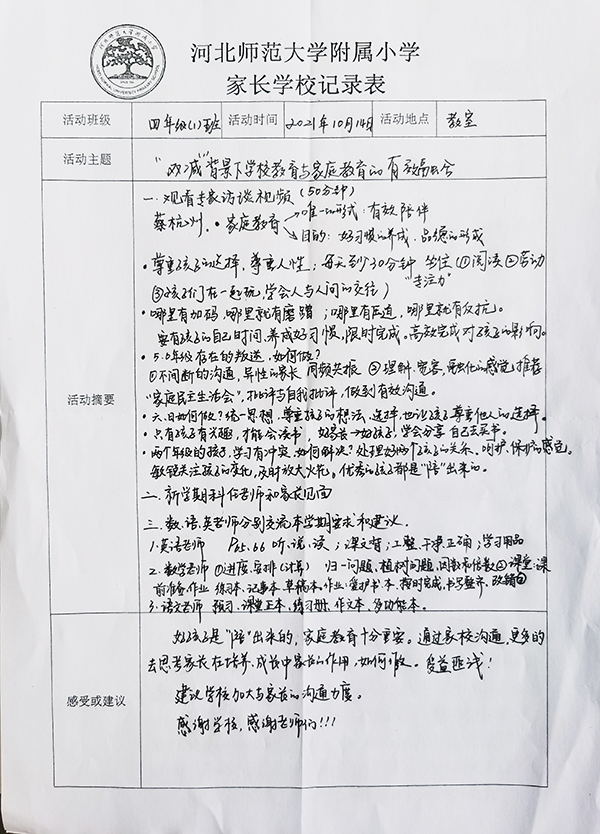 河北师范大学附属小学
家长学校记录表
活动班级 四年级(1)班 活动时间 2021年10月14日 活动地点 教室
活动主题 "双减"背景下学校教育与家庭教育的有效融合
活动摘要
一、观看专家访谈视频 (50分钟)
蔡杭州. · 家庭教育 → 唯一的形式:有效陪伴
→ 目的:好习惯的养成、品德的形成
· 尊重孩子的选择,尊重人性;每天到少30分钟 ①阅读 ②劳动
③孩子们在一起玩,学会人与人间的交往) "专注力"
· 哪里有加码,哪里就有磨蹭;哪里有压迫,哪里就有反抗。
要有孩子的自己时间,养成好习惯,限时完成。高效完成对孩子的影响。
· 5.6年级存在的叛逆,如何做?
①不间断的沟通,异性的家长 同频共振 ②理解、宽容, 的感觉,推荐
"家庭民主生活会",批评与自我批评,做到有效沟通。
· 六.日如何做?统一思想、尊重孩子的想法、选择,也让孩子尊重他人的选择。
· 只有孩子有兴趣,才能会读书,好家长→好孩子,学会分享 自己去买书。
· 两个年级的孩子,学习有冲突,如何解决?处理好两个孩子的关系、呵护、保护的感觉。
敏锐关注孩子的变化,及时放大火花。优秀的孩子都是"陪"出来的。
二、新学期科任老师和家长见面
三、数、语、英老师分别交流本学期要求和建议.
1.英语老师 P65、66 听、说、读;课文背;工整、干净、正确;学习用品
2.数学老师 ①进度、安排(计算) 归一问题、植树问题、因数和倍数 ②课堂:课
前准备作业 练习本、记事本、草稿本.作业:爱护书本、按时完成、书写整齐、改错
3.语文老师 预习、课堂正本、练习册、作文本、多功能本.
感受或建议
好孩子是"陪"出来的,家庭教育十分重要。通过家校沟通,更多的
去思考家长在培养、成长中家长的作用,如何做。受益匪浅!
建议学校加大与家长的沟通力度。
感谢学校,感谢老师们!!!